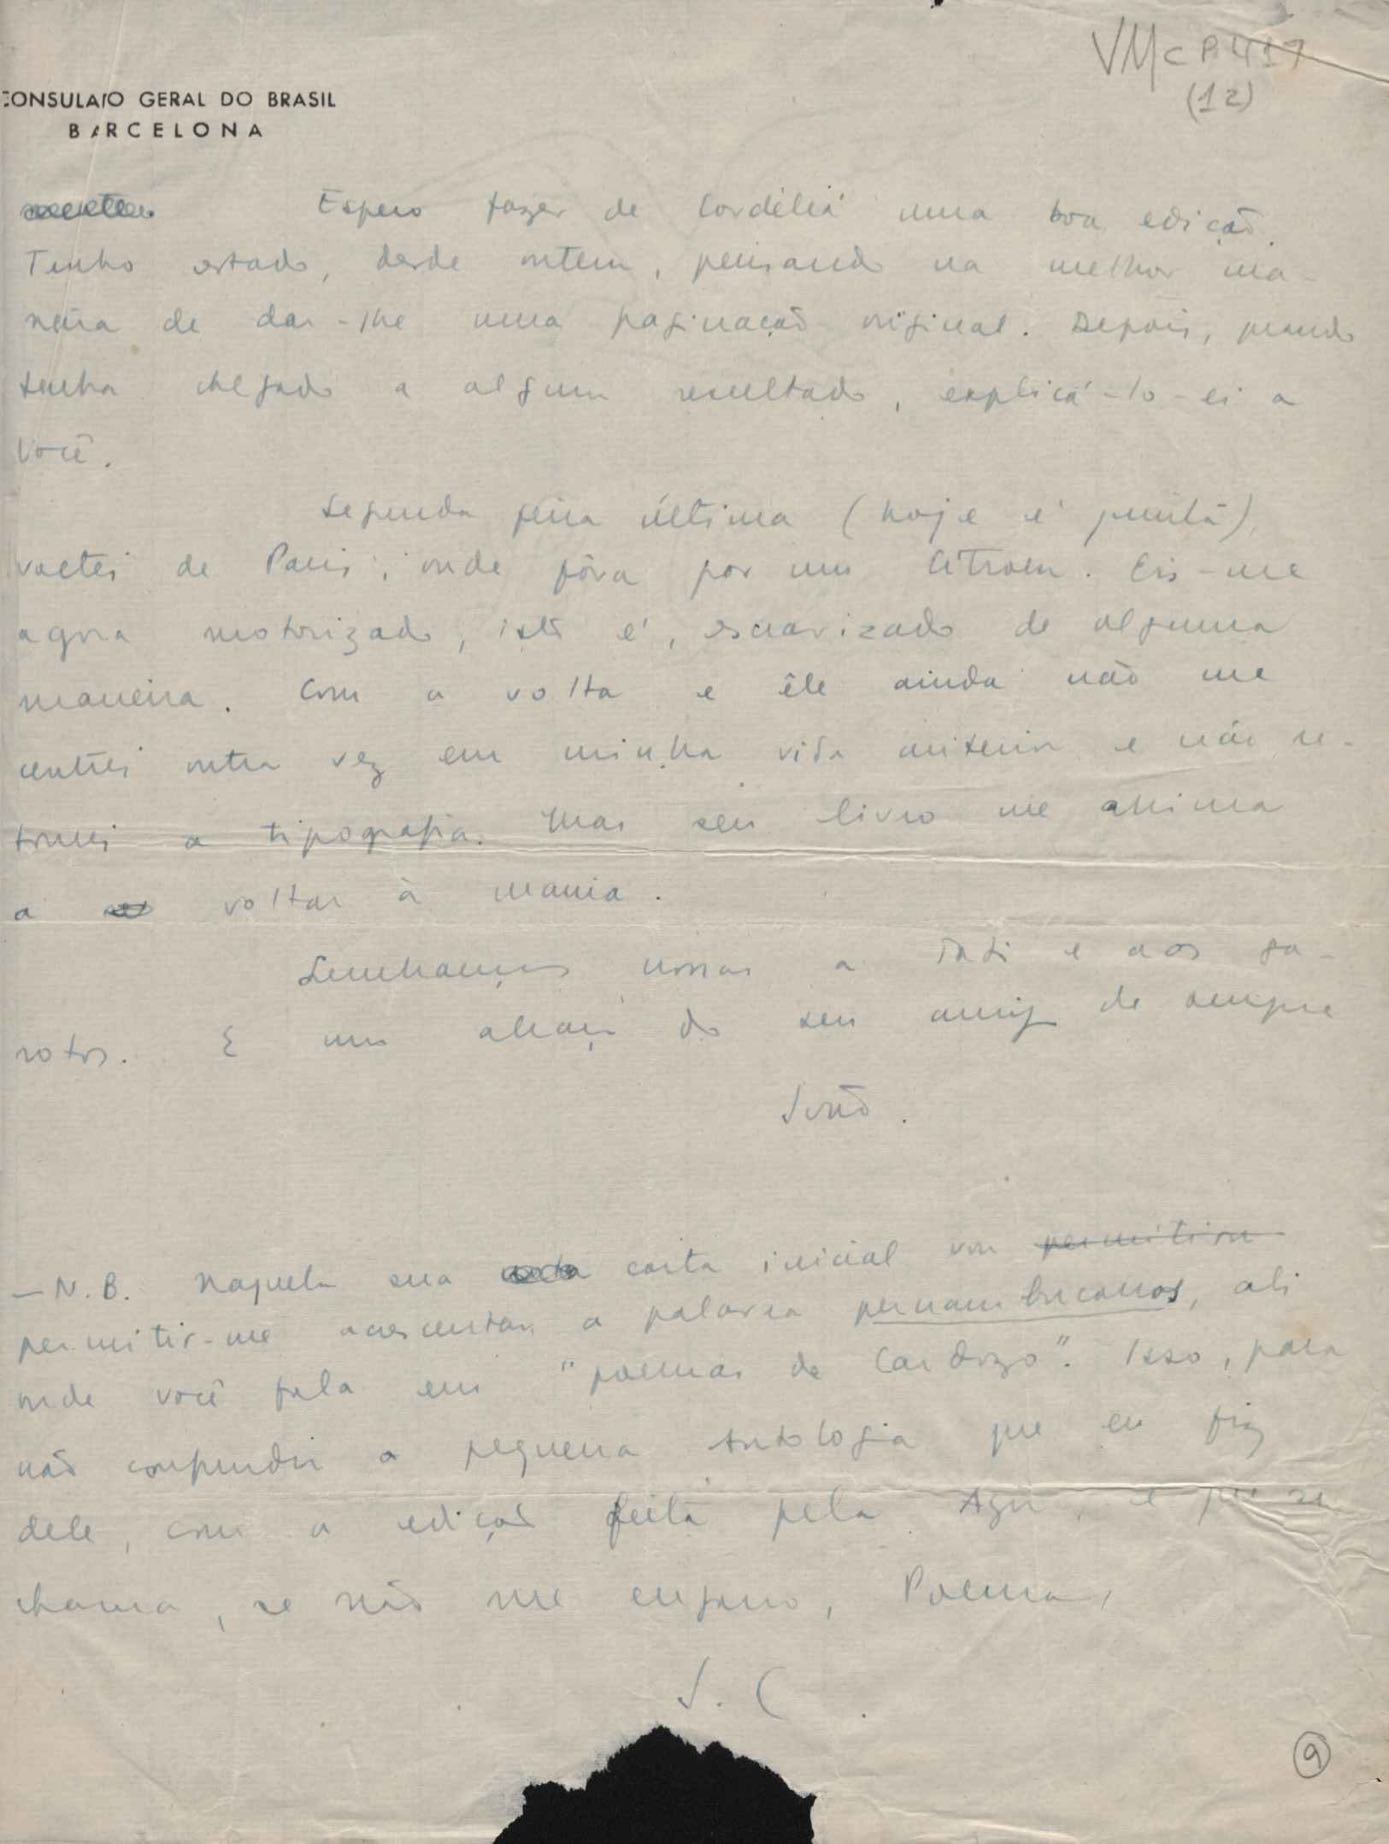 VMcp417
(12)
CONSULADO GERAL DO BRASIL
BARCELONA
Espero fazer de Cordélia uma boa edição.
Tenho estado, desde ontem, pensando na melhor ma-
neira de dar-lhe uma paginação original. Depois, quando
tenha chegado a algum resultado, explicá-lo-ei a
Você.
Segunda feira última (hoje é quinta),
voltei de Paris, onde fôra por um Citroen. Eis-me
agora motorizado, isto é, escravizado de alguma
maneira. Com a volta e êle ainda não me
centrei outra vez em minha vida anterior e não re-
tomei a tipografia. Mas seu livro me anima
a voltar à mania.
Lembranças nossas a Tati e aos ga-
rotos. E um abraço do seu amigo de sempre
João.
— N.B. Naquela sua carta inicial vou permitir
permitir-me acrescentar a palavra pernambucanos, ali
onde você fala em "poemas de Cardozo". Isso, para
não confundir a pequena Antologia que eu fiz
dele, com a edição feita pela Agir, e que se
chama, se não me engano, Poemas,
J. C.
9